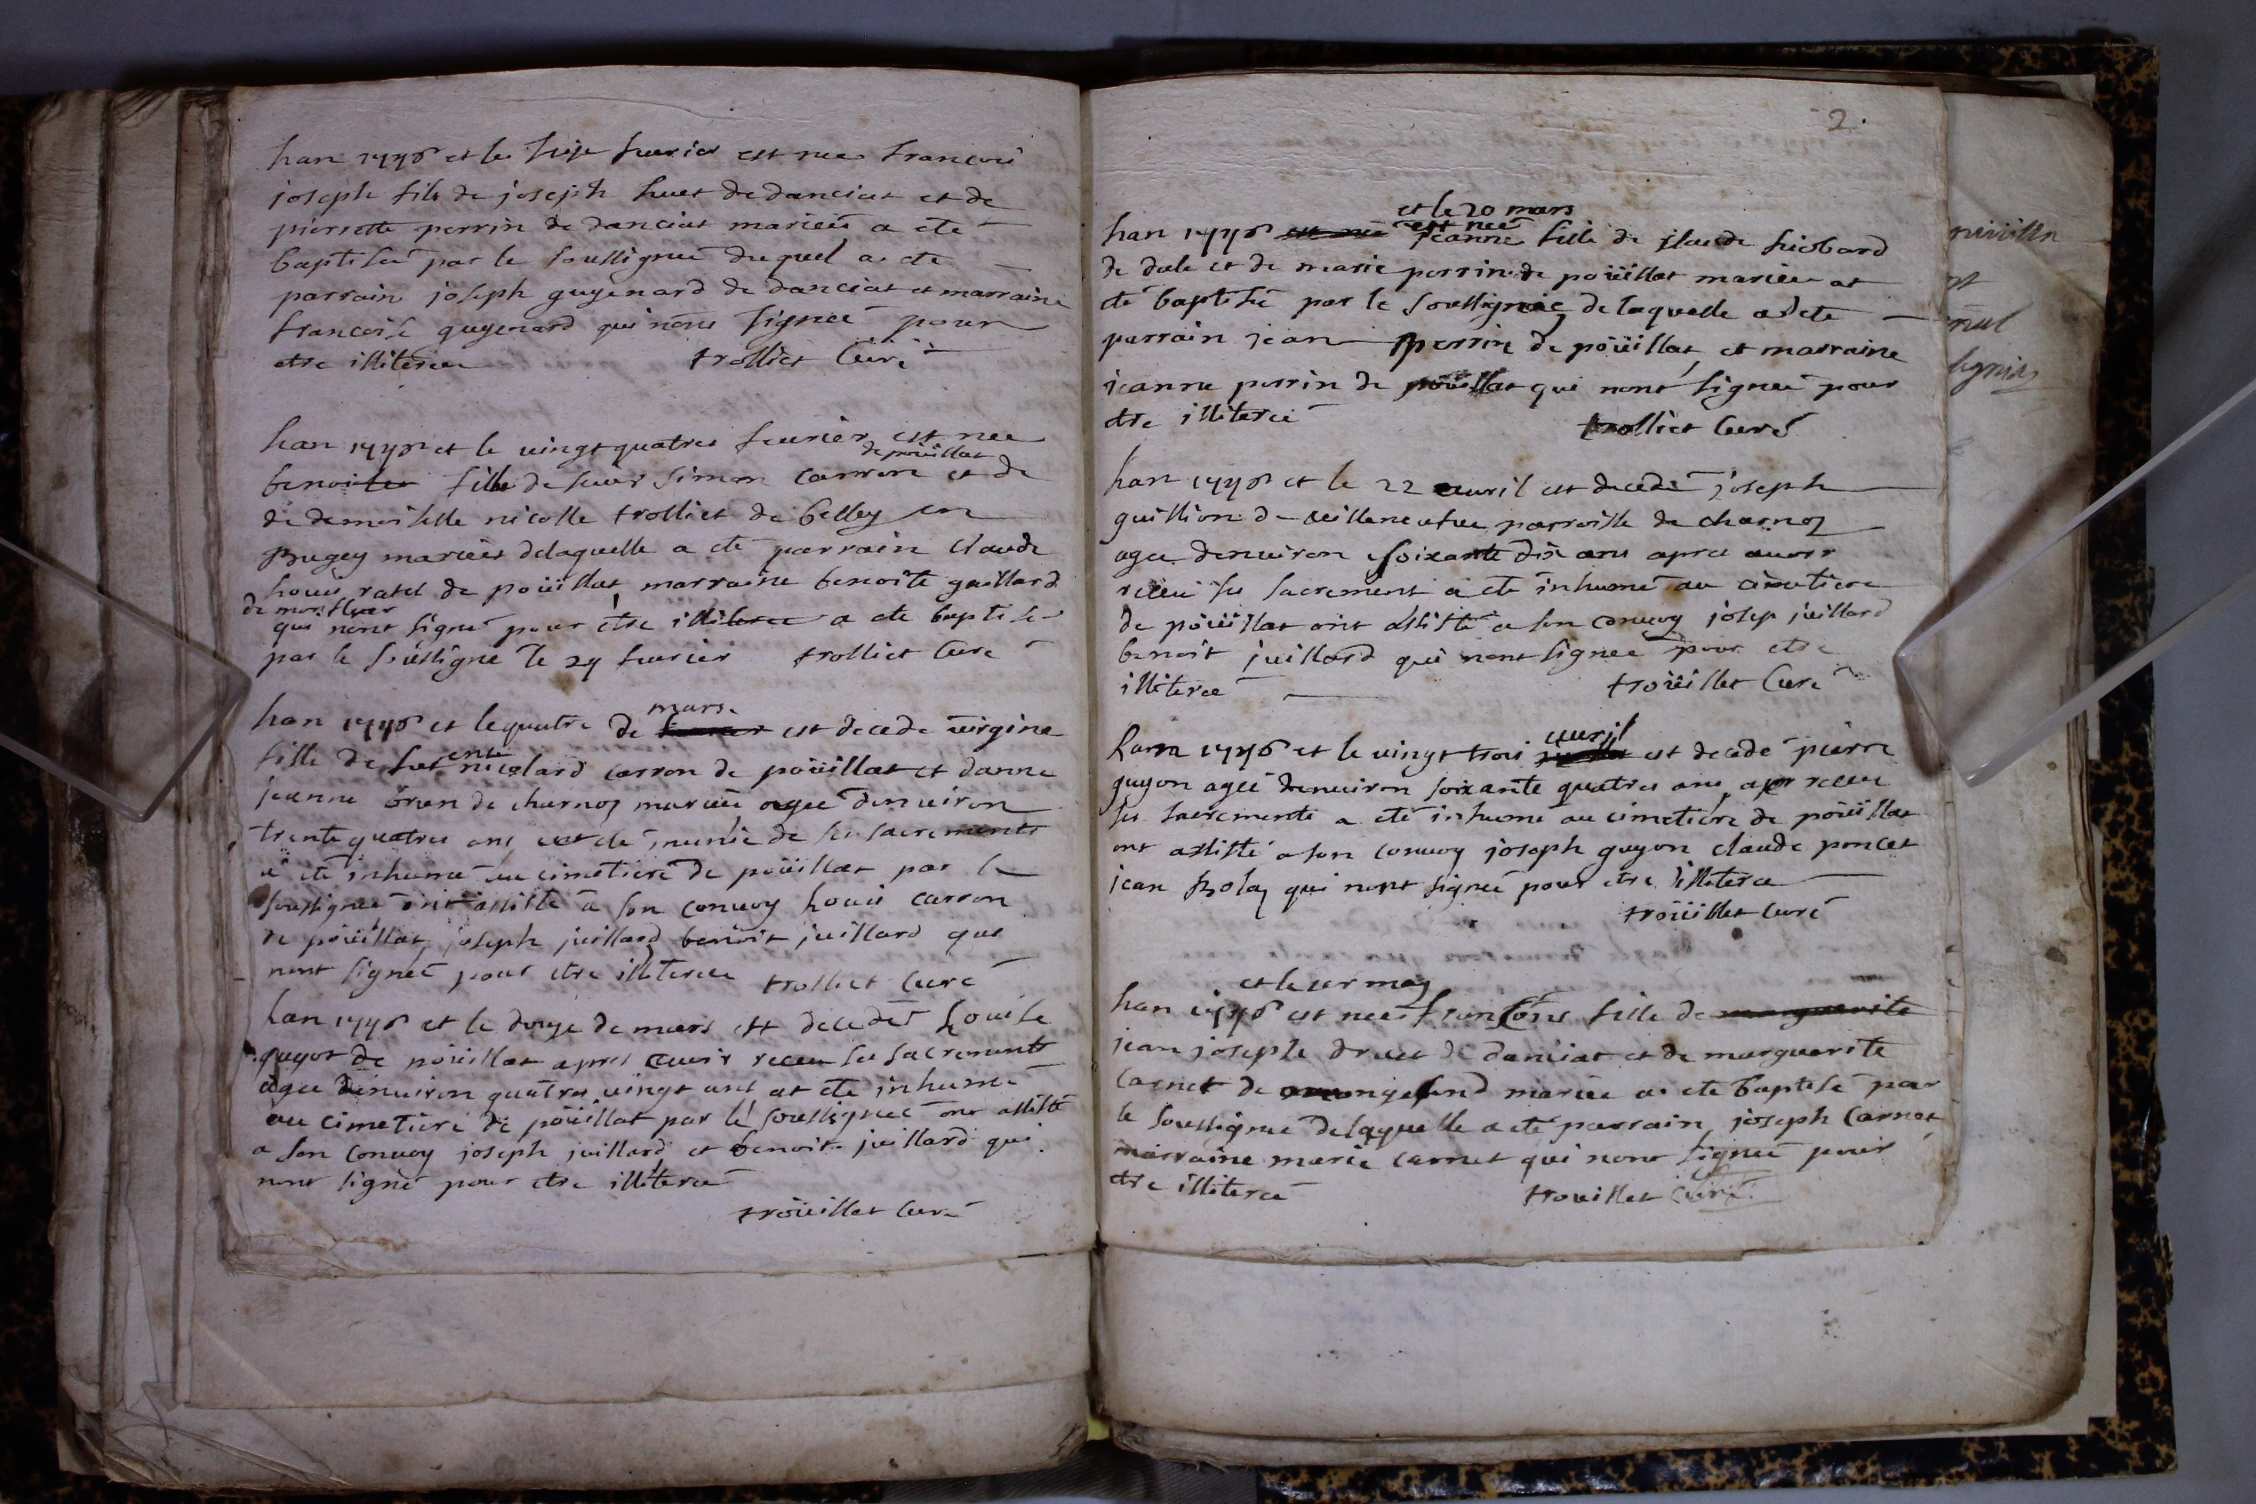 han 1776 et le seize feurier est nee francois
joseph fils de joseph huet de danciat et de
pierrette perrin de danciat mariées a ete
baptisée par le soussignée duquel a ete
parrain joseph guyenard de danciat et marraine
francoise guyenard qui nons signée pour
etre illiteree trolliet Curé
han 1776 et le vingt quatres feurier est nee
de poüillat
benoite fille de sieur simon carron et de
de demoiselle nicolle trolliet de belley en
Bugey mariées delaquelle a eté parrain Claude
houis ratel de poüillat marraine benoite gaillard
de
qui nont signé pour étre illiteree a ete baptise
par le soussigné le 24 feurier trolliet Curé
mars
han 1776 et le quatre de est decede virgine
fille de nicolard carron de poüillat et danne
jeanne de charnoz mariée agée denuiron
trente quatres ans eté munie de ses sacrements
a été inhumé au cimetiere de poüillat par le
soussignée ont assisté a son conuoy houis carron
de poüillat joseph juillard benoit juillard qui
nont signée pour etre illiteree trolliet Curé
han 1776 et le douze de mars est decedée Louise
guyot de poüillat apres auoir receu ses sacrements
agée denuiron quatres vingt ans at eté inhumé
au cimetiere de poüillat par le soussignée ont assisté
a son conuoy joseph juillard et benoit juillard qui
nont signé pour etre illiteree
troüillet Curé
2.
et le 20 mars
est née
han 1776 est née jeanne fille de claude
de dale et de marie perrin de poüillat mariée at
eté baptisée par le soussignée delaquelle a ete
parrain jean perrin de poüillat et marraine
jeanne perrin de poüillat qui nont signée pour
etre illiteree trolliet Curé
han 1776 et le 22 auril est decedé joseph
guillion de veilleneufue parroisse de charnoz
agée denuiron soixante dix ans apres auoir
receu ses sacrement a eté inhumé au cimetiere
de poüillat ont assisté a son conuoy josep juillard
benoit juillard qui nont signée pour etre
illiteree troüillet Curé
auril
han 1776 et le vingt trois est decedé pierre
guyon agée denuiron soixante quatres ans apr receu
ses sacrements a eté inhumé au cimetiére de poüillat
ont assisté a son conuoy joseph guyon claude poncet
jean Bolay qui nont signée pour etre illiteree
troüillet Curé
et le 1er may
han 1776 est née fille de marguerite
jean joseph druet de danciat et de marguerite
Carnet de mariée a eté baptisé par
le soussignée delaquelle a eté parrain joseph Carnet
marraine marie carnet qui nont signée pour
etre illiteree trouillet Curé